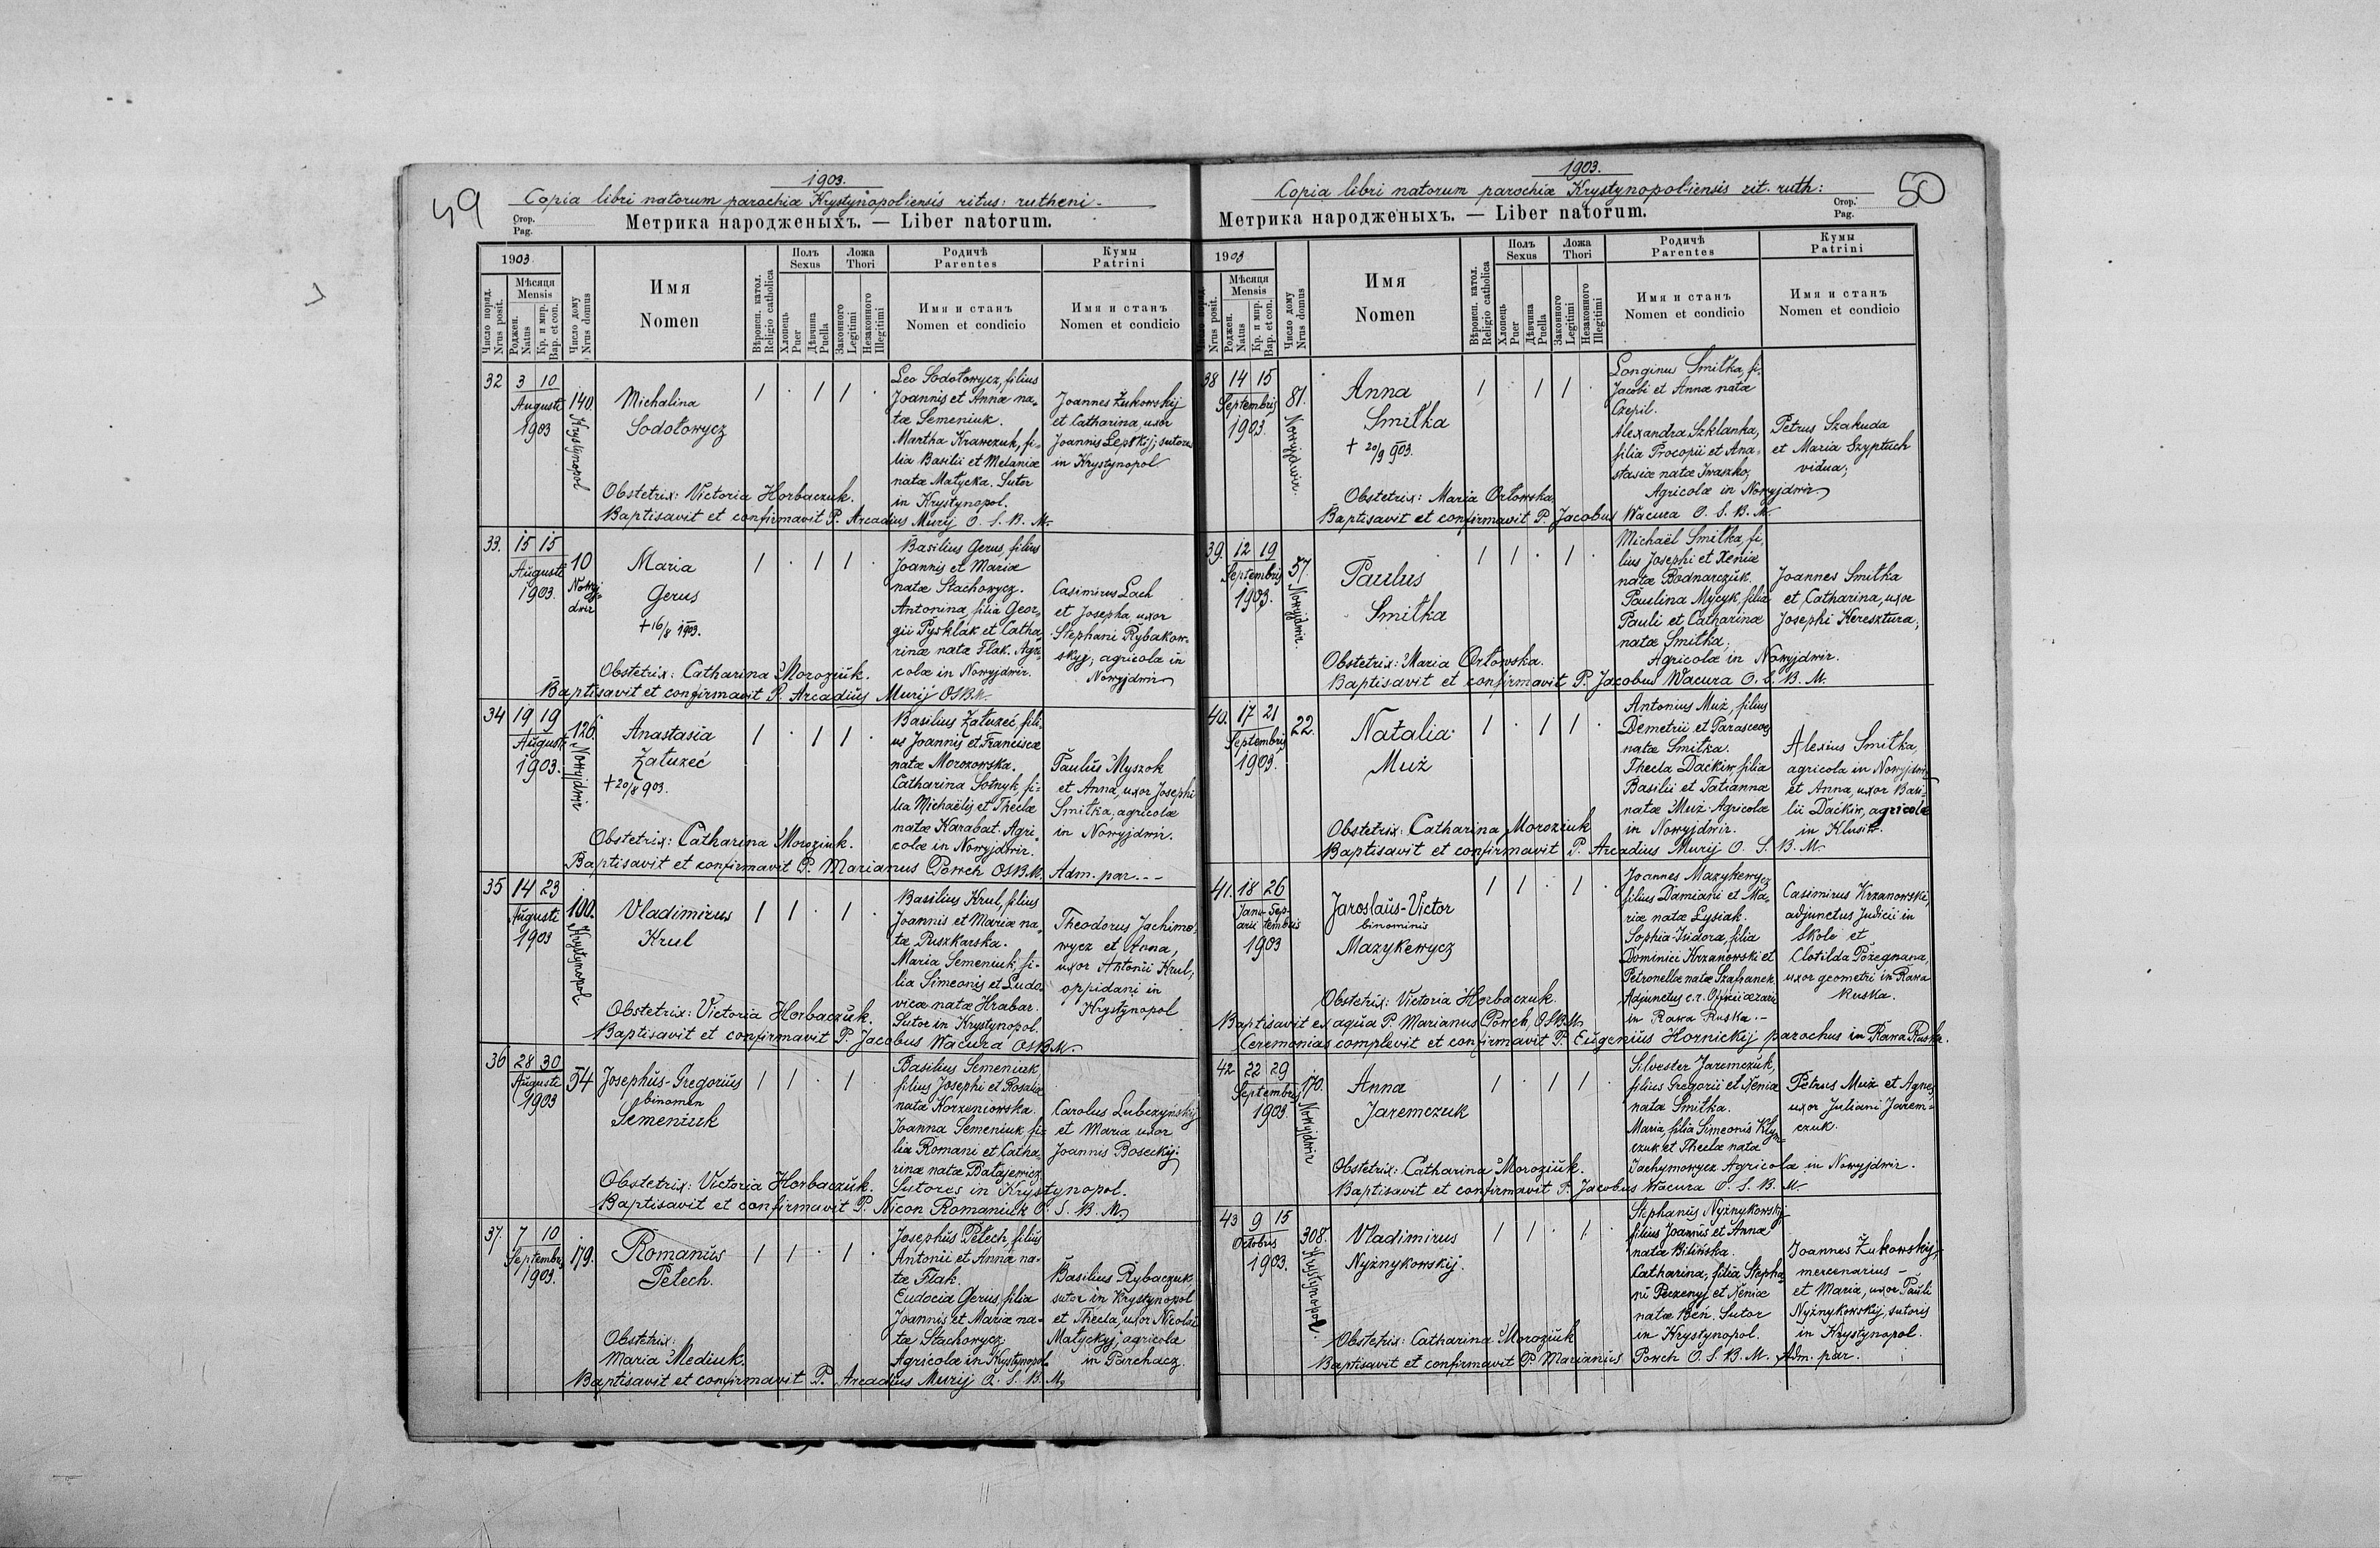 49
1903.
Copia libri natorum parochiæ Krystynopoliensis ritus: rutheni.
Стор.
Pag.
Метрика народженыхъ. — Liber natorum.
1903.
Число поряд.
Nrus posit.
Мѣсяця
Mensis
Рожден.
Natus
Кр. и мир.
Bap. et con.
Число дому
Nrus domus
Имя
Nomen
Вѣроисп. катол.
Religio catholica
Полъ
Sexus
Хлопець
Puer
Дѣвчина
Puella
Ложа
Thori
Законного
Legitimi
Незаконного
Illegitimi
Родичѣ
Parentes
Имя и станъ
Nomen et condicio
Кумы
Patrini
Имя и станъ
Nomen et condicio
32
3 10
Augusti
1903
140.
Krystynopol
Michalina
Sodołowycz
Leo Sodołowycz, filius
Joannis et Annæ na-
tæ Semeniuk.
Martha Krawczuk, fi-
lia Basilii et Melaniæ
natæ Małycka. Sutor
in Krystynopol.
Joannes Żukowskij
et Catharina, uxor
Joannis Leptkij, sutores
in Krystynopol
Obstetrix: Victoria Horbaczuk.
Baptisavit et confirmavit P. Arcadius Murij O. S. B. M.
33.
15 15
Augusti
1903.
10
Nowyj-
dwir
Maria
Gerus
+ 16/8 1903.
Basilius Gerus, filius
Joannis et Mariæ
natæ Stachowycz.
Antonina, filia Geor-
gii Pysklak et Catha-
rinæ natæ Flak. Agri-
colæ in Nowyjdwir.
Casimirus Lach
et Josepha, uxor
Stephani Rybakow-
skyj, agricolæ in
Nowyjdwir
Obstetrix: Catharina Moroziuk.
Baptisavit et confirmavit P. Arcadius Murij OSBM.
34
19 19
Augusti
1903.
126.
Nowyjdwir
Anastasia
Załuzeć
+ 20/8 903.
Basilius Załuzeć, fili-
us Joannis et Franciscæ
natæ Morozowska.
Catharina Sotnyk, fi-
lia Michaëlis et Theclæ
natæ Karabat. Agri-
colæ in Nowyjdwir.
Paulus Myszok
et Anna, uxor Josephi
Smitka, agricolæ
in Nowyjdwir.
Obstetrix: Catharina Moroziuk.
Baptisavit et confirmavit P. Marianus Powch OSBM. Adm. par.
35
14 23
Augusti
1903
100.
Krystynopol
Vladimirus
Krul
Basilius Krul, filius
Joannis et Mariæ na-
tæ Puszkarska.
Maria Semeniuk, fi-
lia Simeonis et Ludo-
vicæ natæ Hrabar.
Sutor in Krystynopol.
Theodorus Jachimo-
wycz et Anna,
uxor Antonii Krul,
oppidani in
Krystynopol
Obstetrix: Victoria Horbaczuk.
Baptisavit et confirmavit P. Jacobus Wacura OSBM.
36
28 30
Augusti
1903
54
Josephus-Gregorius
binomen
Semeniuk
Basilius Semeniuk
filius Josephi et Rosaliæ
natæ Korzeniowska.
Joanna Semeniuk fi-
lia Romani et Catha-
rinæ natæ Batajewicz
Sutores in Krystynopol.
Carolus Lubczynskij
et Maria uxor
Joannis Boseckij.
Obstetrix: Victoria Horbaczuk.
Baptisavit et confirmavit P. Nicon Romaniuk O. S. B. M.
37.
7 10
Septembris
1903.
179.
Romanus
Petech.
Josephus Petech, filius
Antonii et Annæ na-
tæ Flak.
Eudocia Gerus, filia
Joannis et Mariæ na-
tæ Stachowycz,
Agricolæ in Krystynopol
Basilius Rybaczuk,
sutor in Krystynopol
et Thecla, uxor Nicolai
Małyckyj, agricolæ
in Parchacz
Obstetrix:
Maria Mediuk.
Baptisavit et confirmavit P. Arcadius Murij O. S. B. M.
50
1903.
Copia libri natorum parochiæ Krystynopoliensis rit. ruth:
Стор.
Pag.
Метрика народженыхъ. — Liber natorum.
1903
Число поряд.
Nrus posit.
Мѣсяця
Mensis
Рожден.
Natus
Кр. и мир.
Bap. et con.
Число дому
Nrus domus
Имя
Nomen
Вѣроисп. катол.
Religio catholica
Полъ
Sexus
Хлопець
Puer
Дѣвчина
Puella
Ложа
Thori
Законного
Legitimi
Незаконного
Illegitimi
Родичѣ
Parentes
Имя и станъ
Nomen et condicio
Кумы
Patrini
Имя и станъ
Nomen et condicio
38
14 15
Septembris
1903.
81.
Nowyjdwir.
Anna
Smitka
+ 20/9 903.
Longinus Smitka, fi.
Jacobi et Annæ natæ
Czepil.
Alexandra Szklanka,
filia Procopii et Ana-
stasiæ natæ Iwaszko,
Agricolæ in Nowyjdwir
Petrus Szakuda
et Maria Szyptuch
vidua,
Obstetrix: Maria Orłowska
Baptisavit et confirmavit P. Jacobus Wacura O. S. B. M.
39.
12 19
Septembris
1903.
57.
Nowyjdwir.
Paulus
Smitka
Michaël Smitka, fi-
lius Josephi et Xeniæ
natæ Bodnarczuk.
Paulina Mycyk, filia
Pauli et Catharinæ
natæ Smitka,
Agricolæ in Nowyjdwir.
Joannes Smitka
et Catharina, uxor
Josephi Keresztura,
Obstetrix: Maria Orłowska.
Baptisavit et confirmavit P. Jacobus Wacura O. S. B. M.
40.
17 21
Septembris
1903.
22.
Natalia
Muż
Antonius Muż, filius
Demetrii et Parasceves
natæ Smitka.
Thecla Daćkiw, filia
Basilii et Tatianna
natæ Muż. Agricolæ
in Nowyjdwir.
Alexius Smitka,
agricola in Nowyjdwir
et Anna, uxor Basi-
lii Daćkiw, agricolæ
in Klusiw.
Obstetrix: Catharina Moroziuk
Baptisavit et confirmavit P. Arcadius Murij O. S. B. M.
41.
18 26
Janu- Sep-
arii tembris
1903
Jaroslaus-Victor
binominis
Mazykewycz
Joannes Mazykewycz
filius Damiani et Ma-
riæ natæ Lysiak.
Sophia-Isidora, filia
Dominici Krzanowski et
Petronellæ natæ Szafranek.
Adjunctus c. r. Officii ærarii
in Rawa Ruska.
Casimirus Krzanowski,
adjunctus Judicii in
Skole et
Clotilda Pożegnana,
uxor geometri in Rawa
Ruska.
Obstetrix: Victoria Horbaczuk.
Baptisavit ex aqua P. Marianus Powch, OSBM
Ceremonias complevit et confirmavit P. Eugenius Hornickij parochus in Rawa Ruska.
42
22 29
Septembris
1903.
170.
Nowyjdwir
Anna
Jaremczuk
Silvester Jaremczuk,
filius Gregorii et Xeniæ
natæ Smitka.
Maria, filia Simeonis Klym-
czuk et Theclæ natæ
Jachymowycz Agricolæ in Nowyjdwir.
Petrus Muż et Agnes,
uxor Juliani Jarem-
czuk.
Obstetrix: Catharina Moroziuk.
Baptisavit et confirmavit P. Jacobus Wacura O. S. B. M.
43
9 15
Octobris
1903.
308.
Krystynopol.
Vladimirus
Nyżnykowskij.
Stephanus Nyżnykowskij
filius Joannis et Annæ
natæ Bilińska.
Catharina, filia Stepha-
ni Peczenyj et Xeniæ
natæ Beń. Sutor
in Krystynopol.
Joannes Żukowskij,
mercenarius
et Maria, uxor Pauli
Nyżnykowskij, sutoris
in Krystynopol.
Obstetrix: Catharina Moroziuk
Baptisavit et confirmavit P. Marianus Powch O. S. B. M. Adm. par.